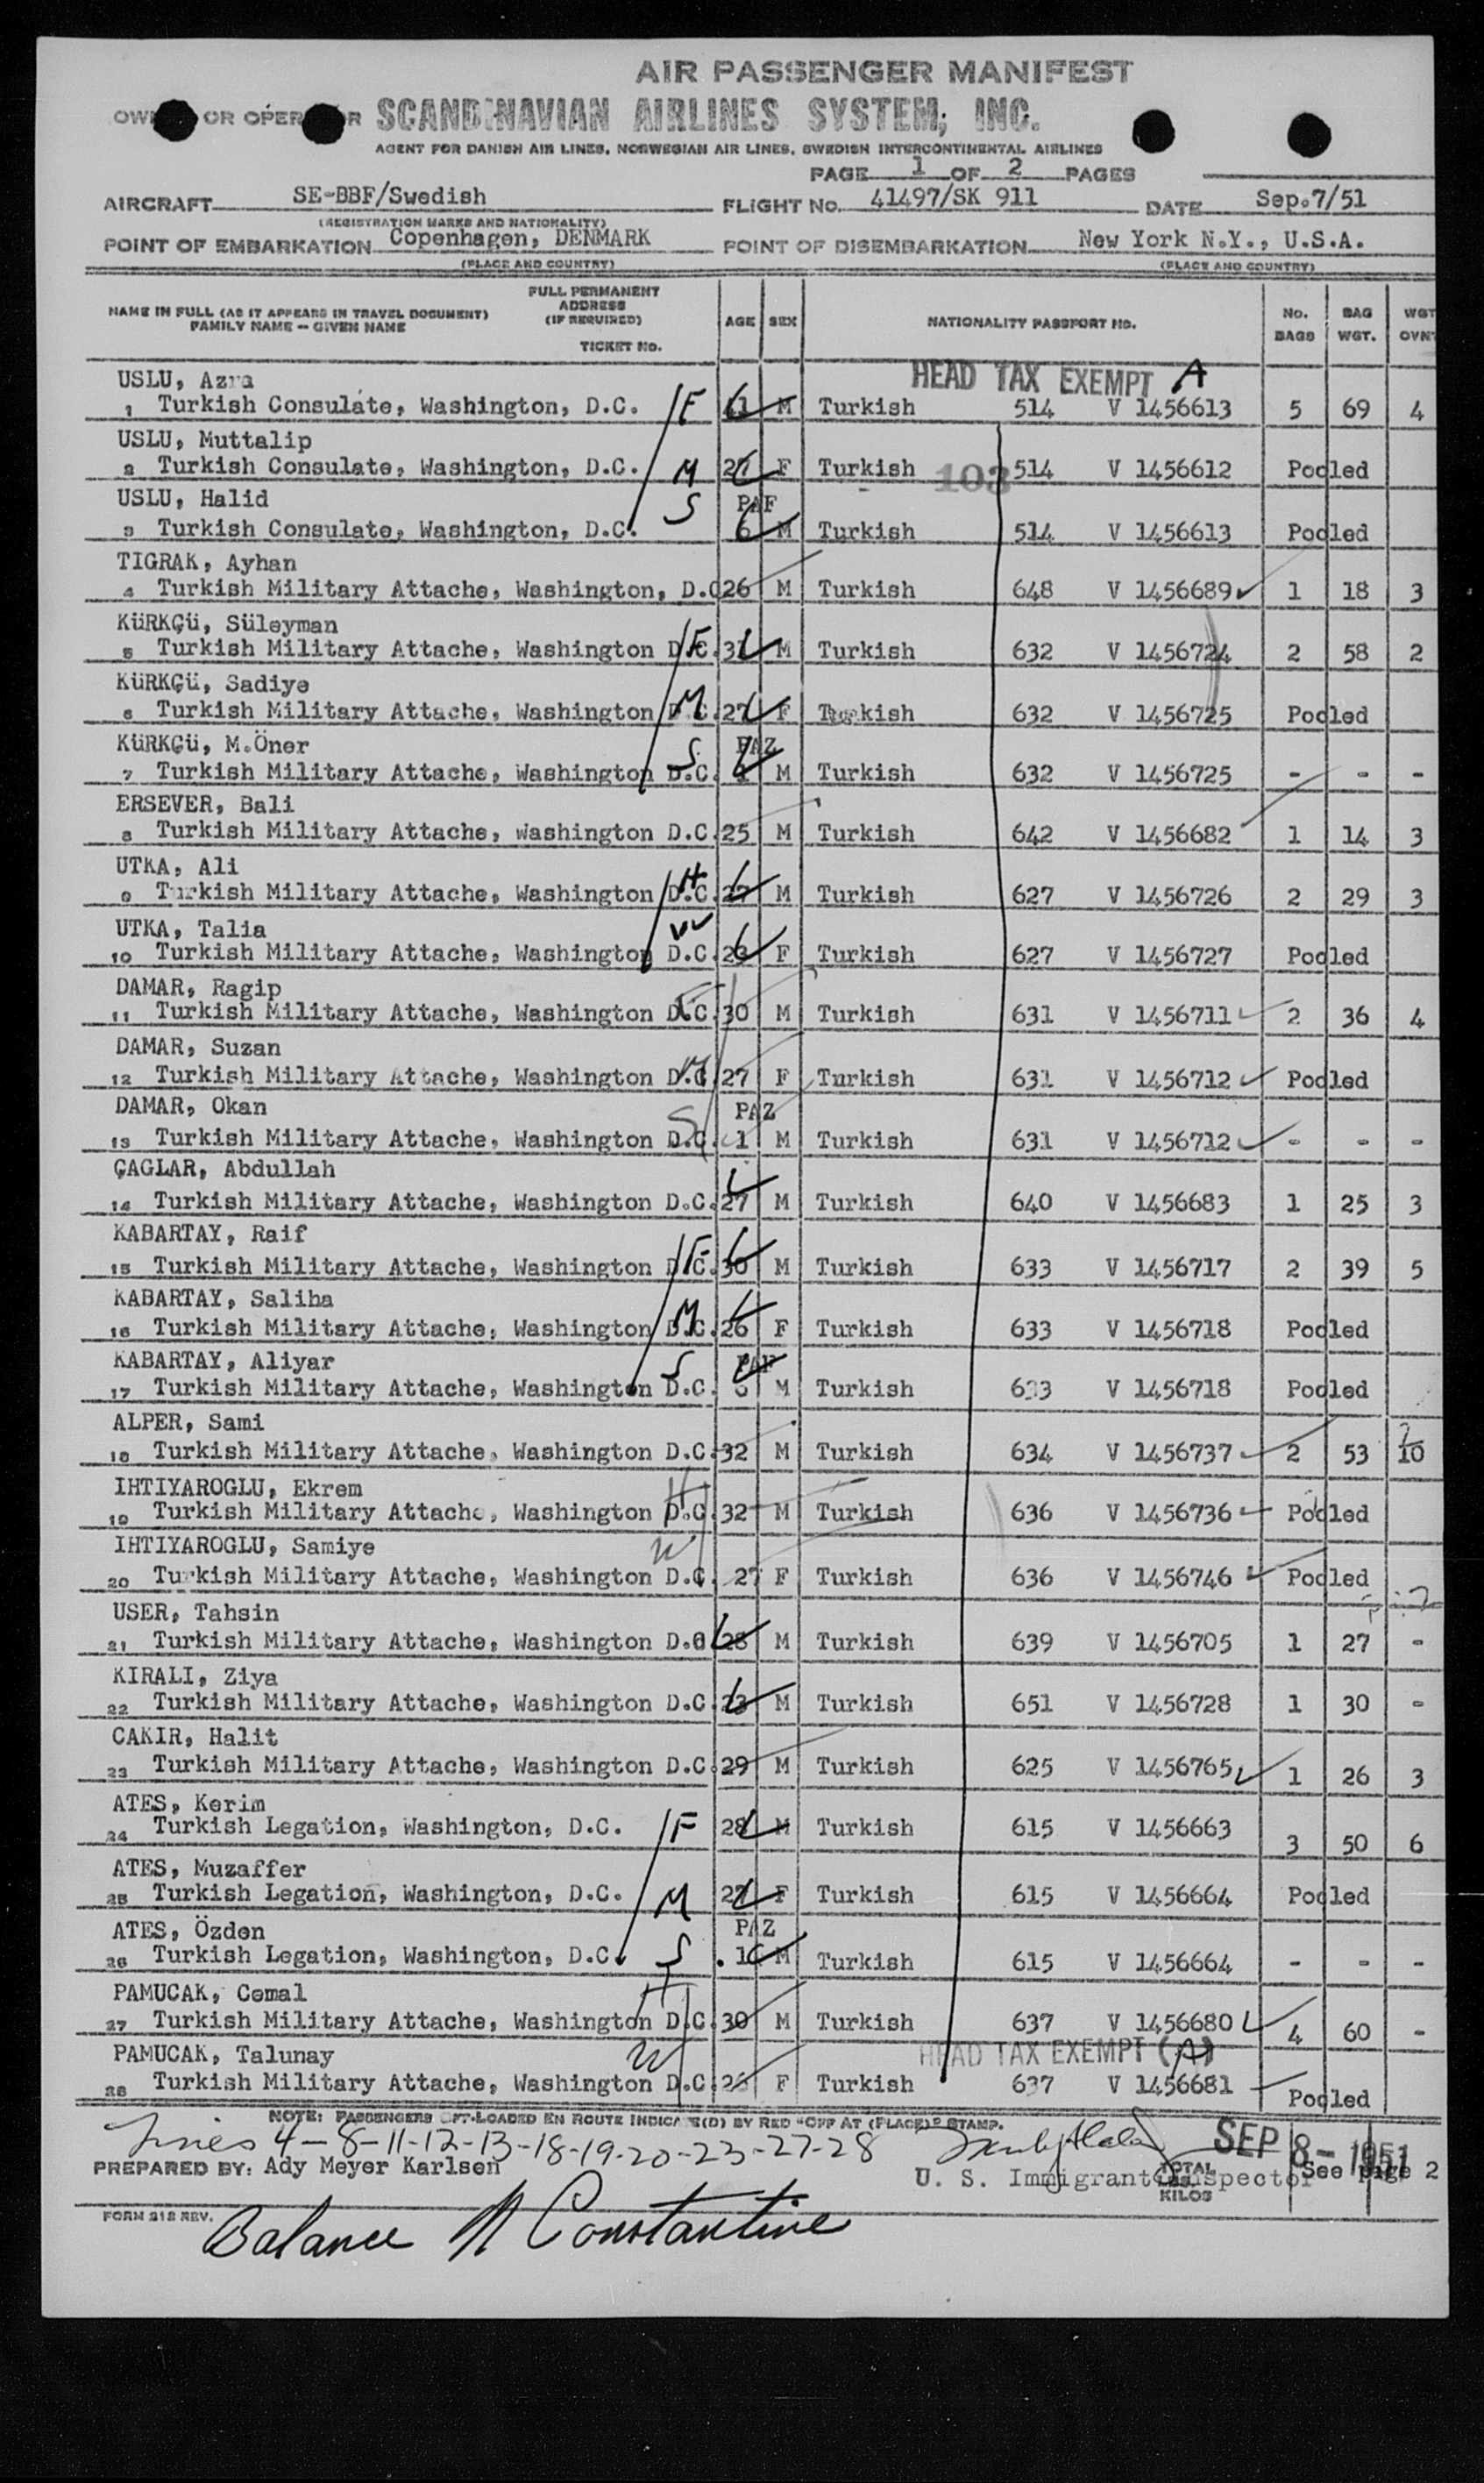 AIR PASSENGER MANIFEST
OR OPER R SCANDINAVIAN AIRLINES SYSTEM, INC.
AGENT FOR DANISH AIR LINES, NORWEGIAN AIR LINES, SWEDISH INTERCONTINENTAL AIRLINES
PAGE 1 OF 2 PAGES
AIRCRAFT SE-BBF/Swedish FLIGHT No. 41497/SK 911 DATE Sep.7/51
(REGISTRATION MARKS AND NATIONALITY)
POINT OF EMBARKATION Copenhagen, DENMARK POINT OF DISEMBARKATION New York N.Y., U.S.A.
(PLACE AND COUNTRY) (PLACE AND COUNTRY)
NAME IN FULL (AS IT APPEARS IN TRAVEL DOCUMENT) FAMILY NAME -- GIVEN NAME FULL PERMANENT ADDRESS (IF REQUIRED) TICKET No. AGE SEX NATIONALITY PASSPORT No. No. BAGS BAG WGT. WGT OVN
HEAD TAX EXEMPT A
USLU, Azra
1 Turkish Consulate, Washington, D.C. F M Turkish 514 V 1456613 5 69 4
USLU, Muttalip
2 Turkish Consulate, Washington, D.C. M 27 F Turkish 103 514 V 1456612 Pooled
USLU, Halid S PAF
3 Turkish Consulate, Washington, D.C. 6 M Turkish 514 V 1456613 Pooled
TIGRAK, Ayhan
4 Turkish Military Attache, Washington, D.C 26 M Turkish 648 V 1456689 1 18 3
KÜRKÇÜ, Süleyman
5 Turkish Military Attache, Washington D.C. F M Turkish 632 V 1456724 2 58 2
KÜRKÇÜ, Sadiye
6 Turkish Military Attache, Washington D.C. M 27 F Turkish 632 V 1456725 Pooled
KÜRKÇÜ, M.Öner S PAZ
7 Turkish Military Attache, Washington D.C. 1 M Turkish 632 V 1456725 - - -
ERSEVER, Bali
8 Turkish Military Attache, Washington D.C. 25 M Turkish 642 V 1456682 1 14 3
UTKA, Ali H
9 Turkish Military Attache, Washington D.C. 27 M Turkish 627 V 1456726 2 29 3
UTKA, Talia W
10 Turkish Military Attache, Washington D.C. 23 F Turkish 627 V 1456727 Pooled
DAMAR, Ragip
11 Turkish Military Attache, Washington D.C. F 30 M Turkish 631 V 1456711 2 36 4
DAMAR, Suzan
12 Turkish Military Attache, Washington D.C. M 27 F Turkish 631 V 1456712 Pooled
DAMAR, Okan S PAZ
13 Turkish Military Attache, Washington D.C. 1 M Turkish 631 V 1456712 - - -
ÇAGLAR, Abdullah
14 Turkish Military Attache, Washington D.C. 27 M Turkish 640 V 1456683 1 25 3
KABARTAY, Raif
15 Turkish Military Attache, Washington D.C. F 30 M Turkish 633 V 1456717 2 39 5
KABARTAY, Saliha
16 Turkish Military Attache, Washington D.C. M 26 F Turkish 633 V 1456718 Pooled
KABARTAY, Aliyar S PAF
17 Turkish Military Attache, Washington D.C. 6 M Turkish 633 V 1456718 Pooled
ALPER, Sami
18 Turkish Military Attache, Washington D.C. 32 M Turkish 634 V 1456737 2 53 10
IHTIYAROGLU, Ekrem
19 Turkish Military Attache, Washington D.C. H 32 M Turkish 636 V 1456736 Pooled
IHTIYAROGLU, Samiye W
20 Turkish Military Attache, Washington D.C. 27 F Turkish 636 V 1456746 Pooled
USER, Tahsin
21 Turkish Military Attache, Washington D.C 28 M Turkish 639 V 1456705 1 27 -
KIRALI, Ziya
22 Turkish Military Attache, Washington D.C. 23 M Turkish 651 V 1456728 1 30 -
CAKIR, Halit
23 Turkish Military Attache, Washington D.C. 29 M Turkish 625 V 1456765 1 26 3
ATES, Kerim
24 Turkish Legation, Washington, D.C. F 28 M Turkish 615 V 1456663 3 50 6
ATES, Muzaffer
25 Turkish Legation, Washington, D.C. M 27 F Turkish 615 V 1456664 Pooled
ATES, Özden PAZ
26 Turkish Legation, Washington, D.C. S 1 M Turkish 615 V 1456664 - - -
PAMUCAK, Cemal H
27 Turkish Military Attache, Washington D.C. 30 M Turkish 637 V 1456680 4 60 -
HEAD TAX EXEMPT (A)
PAMUCAK, Talunay W
28 Turkish Military Attache, Washington D.C. 26 F Turkish 637 V 1456681 Pooled
NOTE: PASSENGERS OFF-LOADED EN ROUTE INDICATE(D) BY RED "OFF AT (PLACE)" STAMP.
Lines 4-8-11-12-13-18-19-20-23-27-28 SEP 8 - 1951
PREPARED BY: Ady Meyer Karlsen U. S. Immigrant Inspector TOTAL KILOS See page 2
FORM 218 REV.
Balance N Constantine